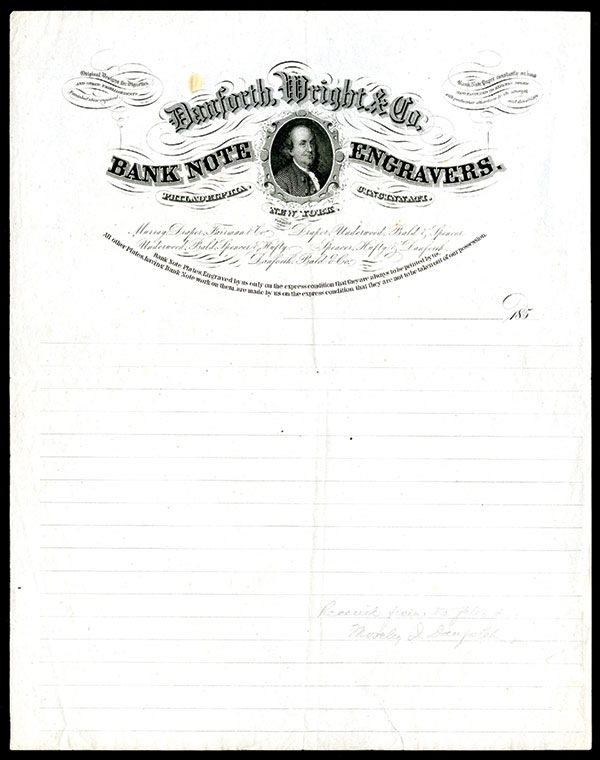 Original Designs for Vignettes
AND OTHER EMBELLISHMENTS
Furnished when required
Bank Note Paper constantly on hand
Danforth, Wright & Co.
BANK NOTE ENGRAVERS.
PHILADELPHIA.
CINCINNATI.
NEW YORK.
Murray, Draper, Fairman & Co.
Draper, Underwood, Bald & Spencer
Underwood, Bald, Spencer & Hufty
Spencer, Hufty & Danforth
Danforth, Bald & Co.
Bank Note Plates, Engraved by us only on the express condition that they are always to be printed by us.
All other Plates, having Bank Note work on them, are made by us on the express condition that they are not to be taken out of our possession.
185